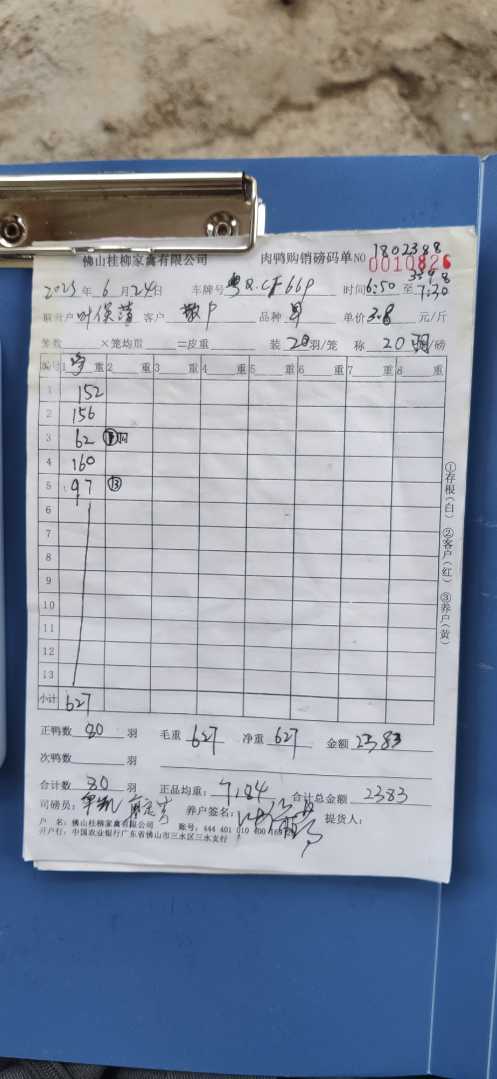 佛山桂柳家禽有限公司 肉鸭购销磅码单NO 1802388
0010826
3598
2023年6月24日 车牌号 粤Q.CF66P 时间6:50至7:30
联养户 叶保 客户 散户 品种 单价3.8元/斤
笼数 ×笼均重 =皮重 装20羽/笼 称20羽/磅
编号 1 重 2 重 3 重 4 重 5 重 6 重 7 重 8 重
1 152
2 156
3 62
4 160
5 97 ⑬
6
7
8
9
10
11
12
13
小计 627
①存根(白) ②客户(红) ③养户(黄)
正鸭数 80 羽 毛重 627 净重 627 金额 2383
次鸭数 羽
合计数 80 羽 正品均重: 7.84 合计总金额 2383
司磅员: 养户签名: 提货人:
户 名: 佛山桂柳家禽有限公司 账号: 444 401 010 400
开户行: 中国农业银行广东省佛山市三水区三水支行